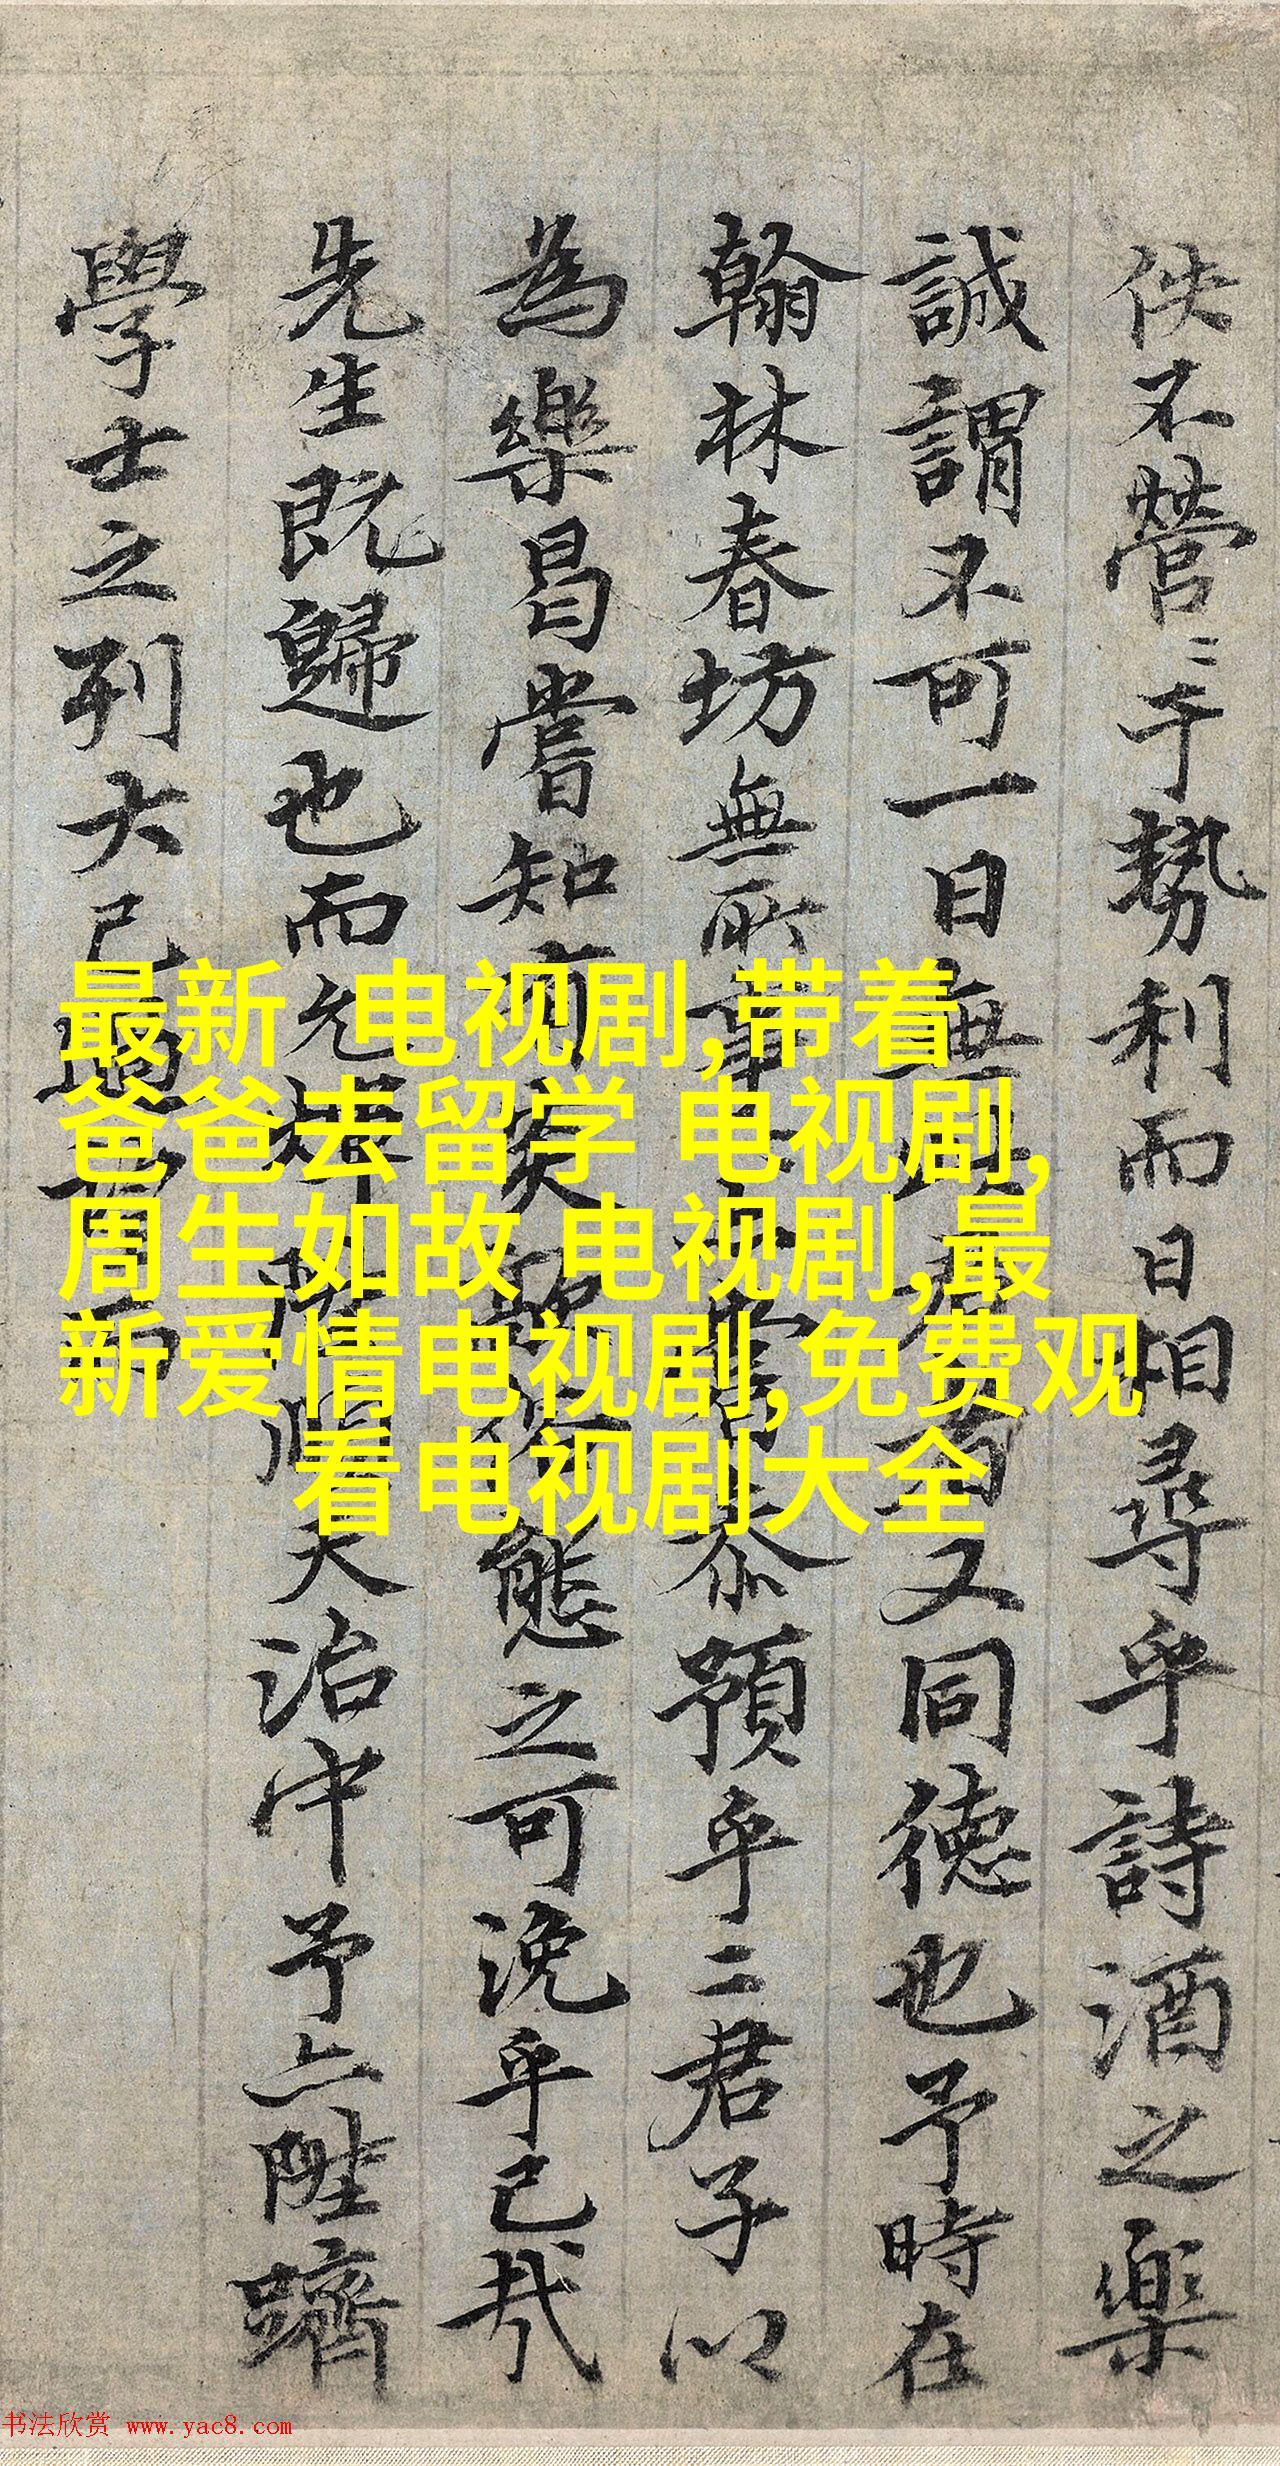 佚不營〻于勢利而日相尋乎詩酒之樂
誠謂不可一日無也又同德也予時在
翰林春坊無所事常忝預乎二君子以
為樂曷嘗知之可浼乎已哉
先生既歸也而允治中予亦陞躋
學士之列大已
最新 电视剧,带着
爸爸去留学 电视剧,
周生如故 电视剧,最
新爱情电视剧,免费观
看电视剧大全
书法欣赏 www.yac8.com